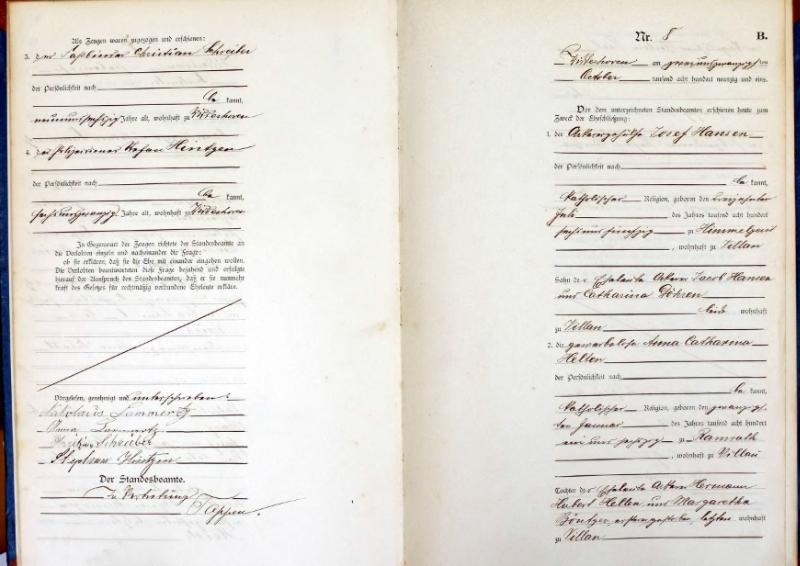 Als Zeugen waren zugezogen und erschienen:
3. der Christian Schreiber
der Persönlichkeit nach
be kannt,
neunundsechszig Jahre alt, wohnhaft zu
4. der Polizeidiener Stefan Hintzen
der Persönlichkeit nach
be kannt,
sechsundzwanzig Jahre alt, wohnhaft zu
In Gegenwart der Zeugen richtete der Standesbeamte an
die Verlobten einzeln und nacheinander die Frage:
ob sie erklären, daß sie die Ehe mit einander eingehen wollen.
Die Verlobten beantworteten diese Frage bejahend und erfolgte
hierauf der Ausspruch des Standesbeamten, daß er sie nunmehr
kraft des Gesetzes für rechtmäßig verbundene Eheleute erkläre.
Vorgelesen, genehmigt und unterschrieben:
Lammertz
Anna Lammertz
Schreiber
Stephan Hintzen
Der Standesbeamte.
In Vertretung
Nr. 8
B.
am
October tausend acht hundert neunzig und eins.
Vor dem unterzeichneten Standesbeamten erschienen heute zum
Zweck der Eheschließung:
1. der Ackergehülfe Josef Hansen
der Persönlichkeit nach
be kannt,
katholischer Religion, geboren den
Juli des Jahres tausend acht hundert
sechs und fünfzig zu Himmelgeist
, wohnhaft zu Villau
Sohn der Eheleute Ackerer Jacob Hansen
und Catharina Döhren
beide wohnhaft
zu Villau
2. die gewerbelose Anna Catharina
Hellen
der Persönlichkeit nach
be kannt,
katholischer Religion, geboren den zwanzigs-
ten Januar des Jahres tausend acht hundert
ein und sechszig zu Ramrath
, wohnhaft zu Villau
Tochter der Eheleute Ackerer Hermann
Hubert Hellen und Margaretha
ersterer gestorben, letztere wohnhaft
zu Villau